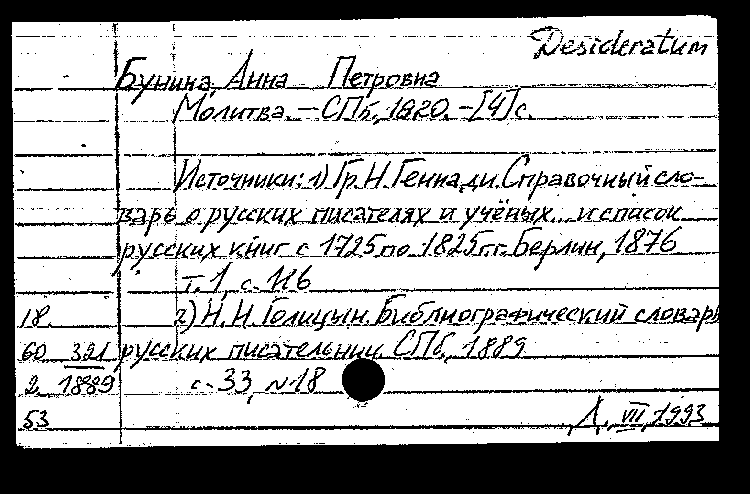 Desideratum
Бунина, Анна Петровна
Молитва. — СПб, 1820. – [4] с.
Источники: 1) Гр. Н. Геннади. Справочный сло-
варь о русских писателях и учёных... и список
русских книг с 1725 по 1825 гг. Берлин, 1876
т. 1, с. 116
18. 2) Н. Н. Голицын. Библиографический словарь
60 321 русских писательниц. СПб, 1889
2 18889 с. 33, №18
53 Л, VII, 1993